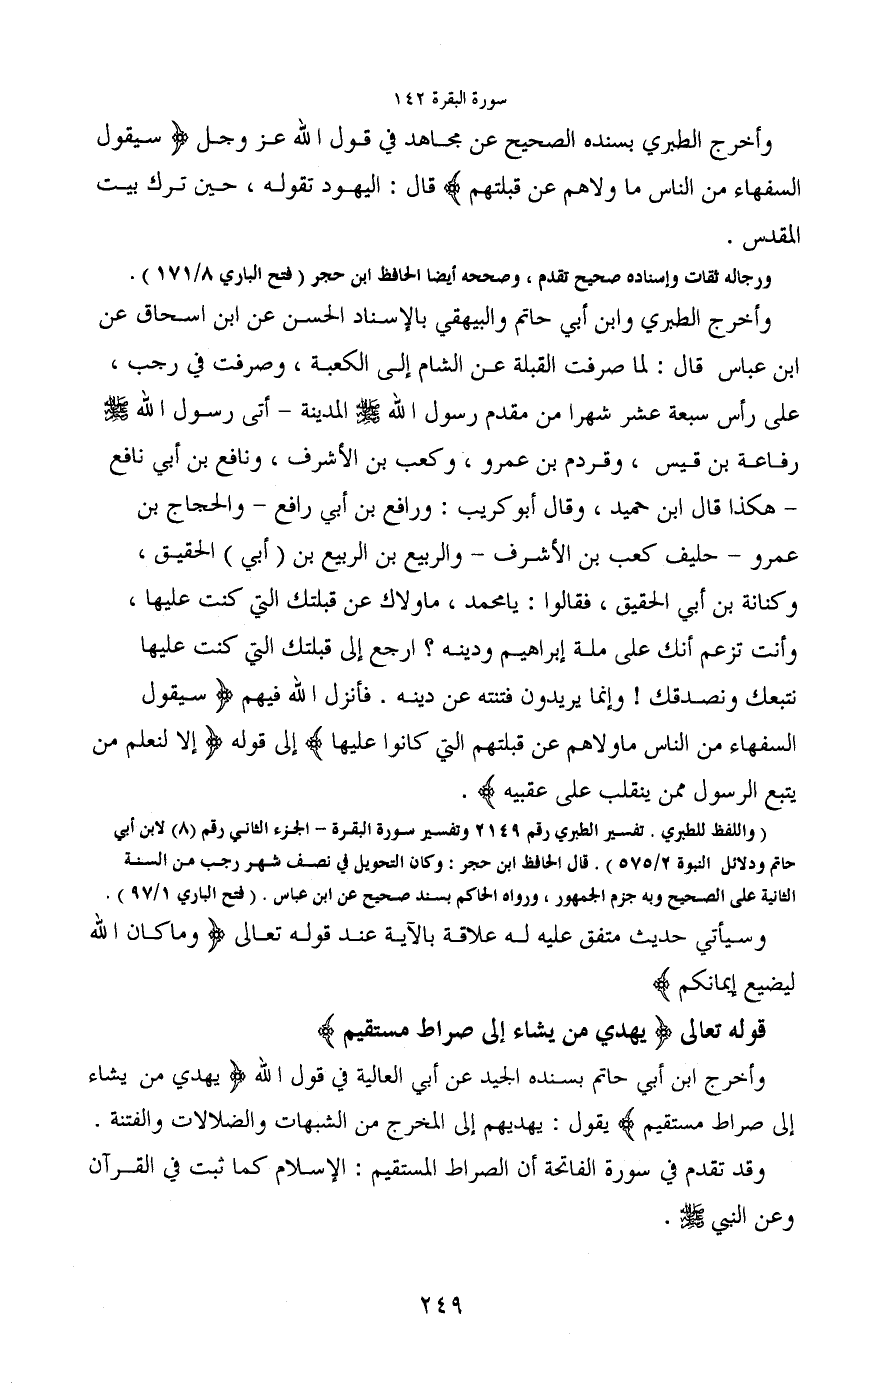 سورة البقرة ١٤٢
وأخرج الطبري بسنده الصحيح عن مجاهد في قول الله عز وجل ﴿ سيقول
السفهاء من الناس ما ولاهم عن قبلتهم ﴾ قال : اليهود تقوله ، حين ترك بيت
المقدس .
ورجاله ثقات وإسناده صحيح تقدم ، وصححه أيضا الحافظ ابن حجر ( فتح الباري ١٧١/٨ ) .
وأخرج الطبري وابن أبي حاتم والبيهقي بالإسناد الحسن عن ابن اسحاق عن
ابن عباس قال : لما صرفت القبلة عن الشام إلى الكعبة ، وصرفت في رجب ،
على رأس سبعة عشر شهرا من مقدم رسول الله ﷺ المدينة - أتى رسول الله ﷺ
رفاعة بن قيس ، وقردم بن عمرو ، وكعب بن الأشرف ، ونافع بن أبي نافع
- هكذا قال ابن حميد ، وقال أبوكريب : ورافع بن أبي رافع - والحجاج بن
عمرو - حليف كعب بن الأشرف - والربيع بن الربيع بن ( أبي ) الحقيق ،
وكنانة بن أبي الحقيق ، فقالوا : يامحمد ، ماولاك عن قبلتك التي كنت عليها ،
وأنت تزعم أنك على ملة إبراهيم ودينه ؟ ارجع إلى قبلتك التي كنت عليها
نتبعك ونصدقك ! وإنما يريدون فتنته عن دينه . فأنزل الله فيهم ﴿ سيقول
السفهاء من الناس ماولاهم عن قبلتهم التي كانوا عليها ﴾ إلى قوله ﴿ إلا لنعلم من
يتبع الرسول ممن ينقلب على عقبيه ﴾ .
( واللفظ للطبري . تفسير الطبري رقم ٢١٤٩ وتفسير سورة البقرة - الجزء الثاني رقم (٨) لابن أبي
حاتم ودلائل النبوة ٥٧٥/٢ ) . قال الحافظ ابن حجر : وكان التحويل في نصف شهر رجب من السنة
الثانية على الصحيح وبه جزم الجمهور ، ورواه الحاكم بسند صحيح عن ابن عباس . ( فتح الباري ٩٧/١ ) .
وسيأتي حديث متفق عليه له علاقة بالآية عند قوله تعالى ﴿ وماكان الله
ليضيع إيمانكم ﴾
قوله تعالى ﴿ يهدي من يشاء إلى صراط مستقيم ﴾
وأخرج ابن أبي حاتم بسنده الجيد عن أبي العالية في قول الله ﴿ يهدي من يشاء
إلى صراط مستقيم ﴾ يقول : يهديهم إلى المخرج من الشبهات والضلالات والفتنة .
وقد تقدم في سورة الفاتحة أن الصراط المستقيم : الإسلام كما ثبت في القرآن
وعن النبي ﷺ .
٢٤٩